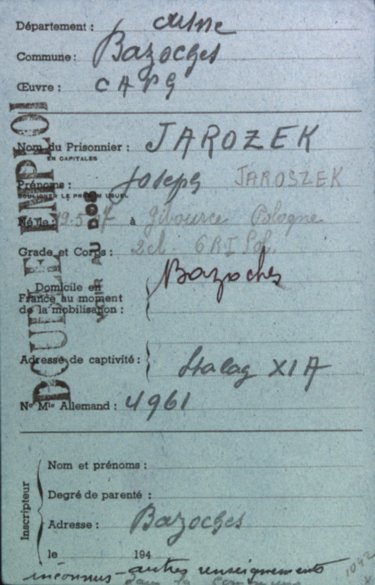 Département : Aisne
Commune : Bazoches
Œuvre : CAPG
Nom du Prisonnier : JAROZEK
EN CAPITALES
Prénoms : Joseph JAROSZEK
SOULIGNER LE PRÉNOM USUEL
Né le : à Pologne
Grade et Corps : 2cl.
Domicile en
France au moment
de la mobilisation :
Bazoches
Adresse de captivité : Stalag XI A
N° Mle Allemand : 4961
DOUBLE EMPLOI
VOIR AU DOS
Inscripteur
Nom et prénoms :
Degré de parenté :
Adresse : Bazoches
le 194
inconnus autres renseignements
dans la commune